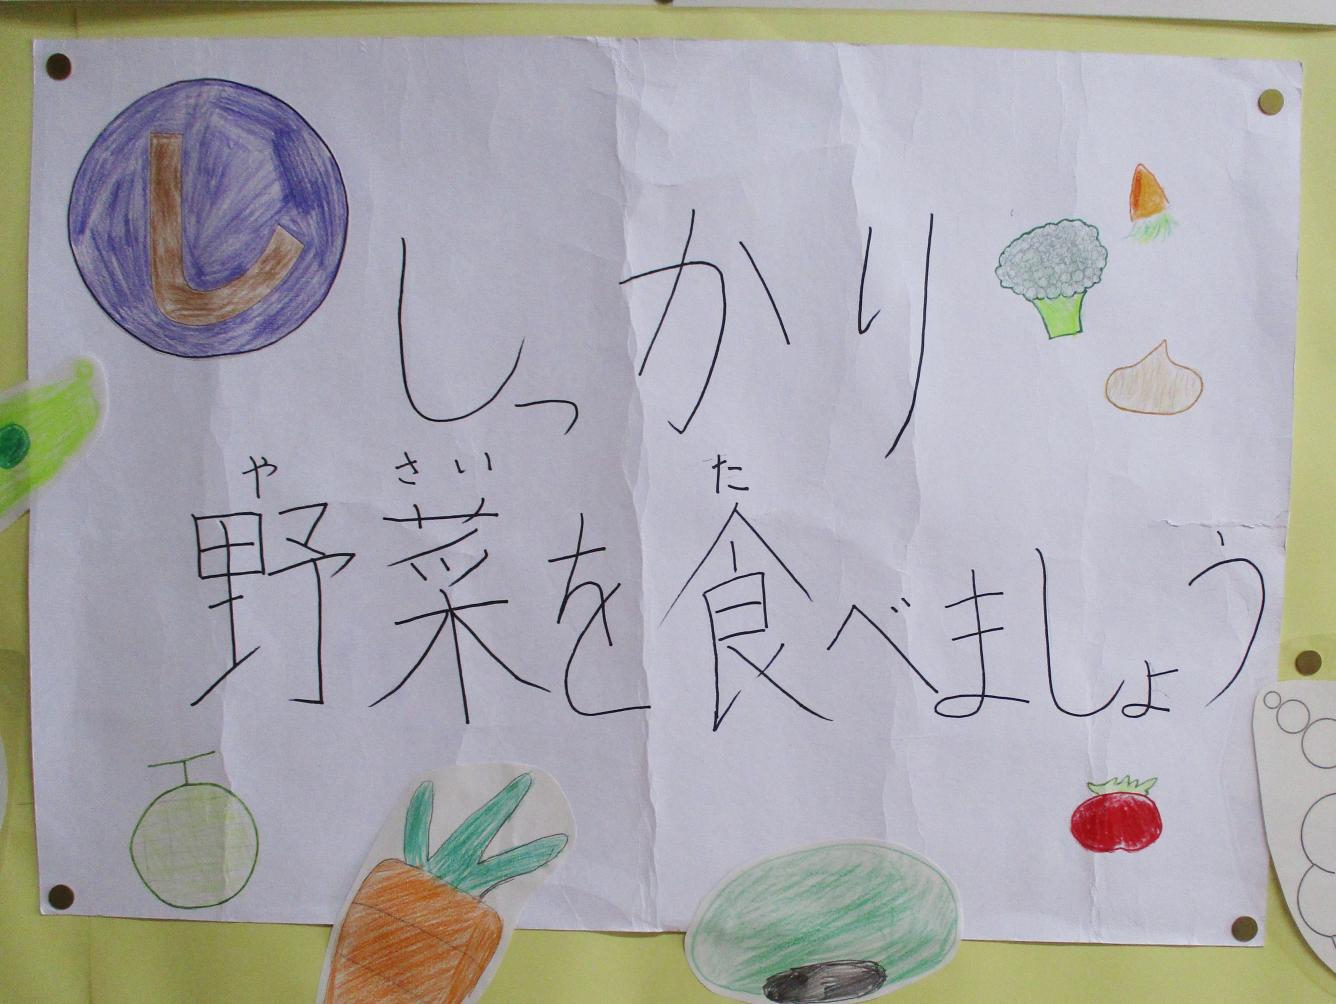 し
しっかり
や さい た
野菜を食べましょう